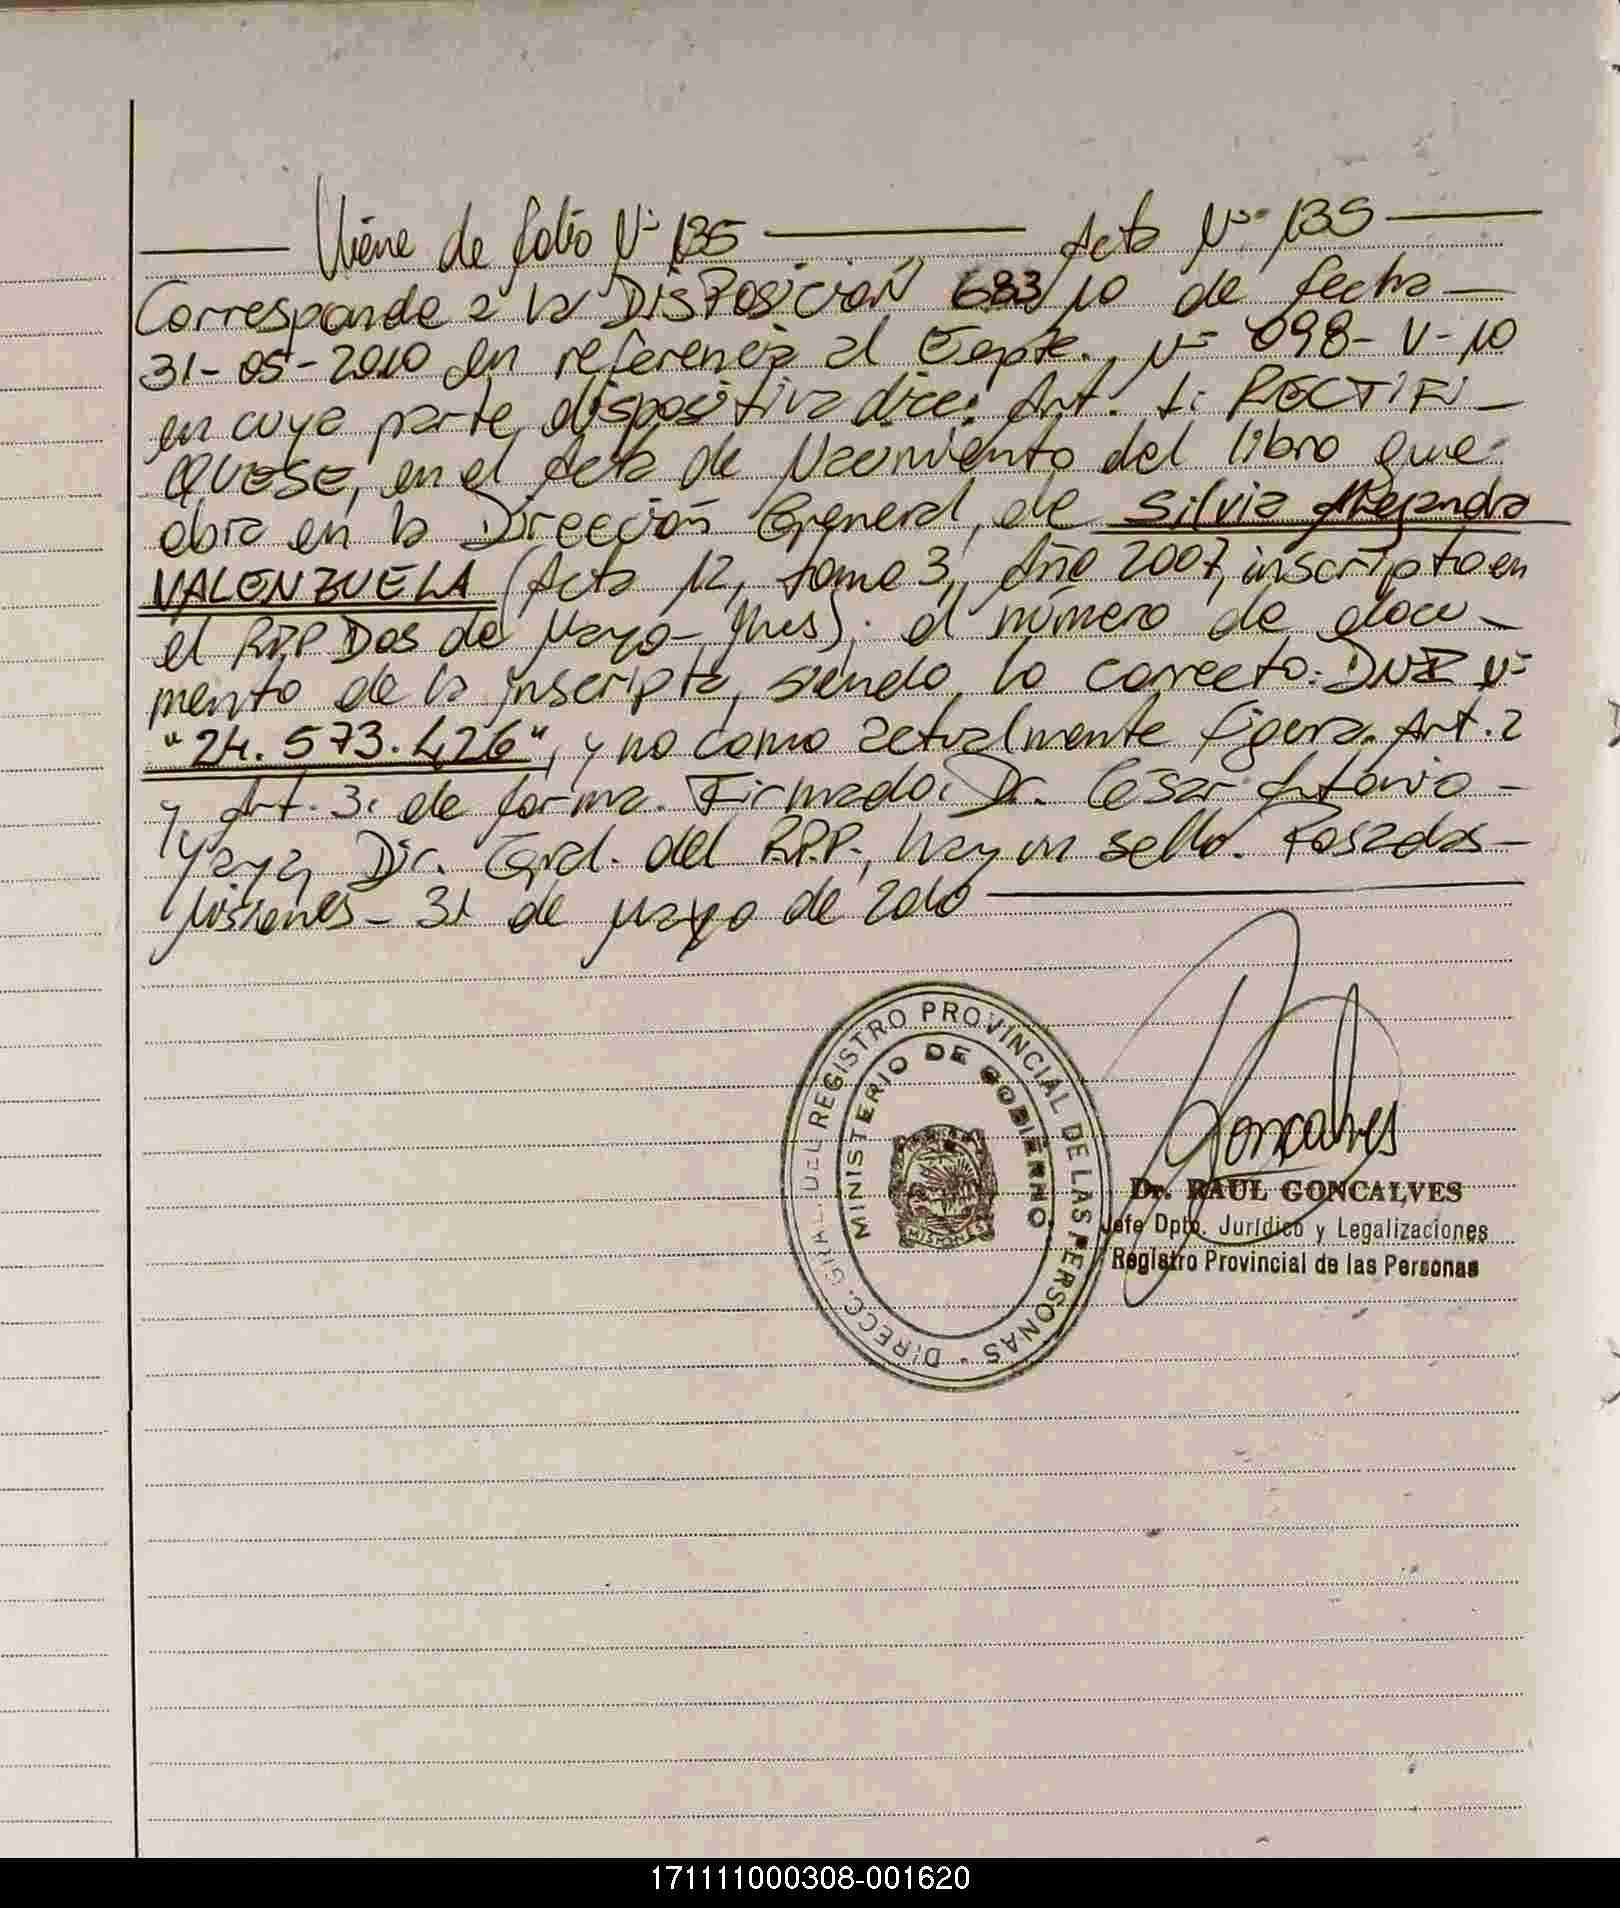 Viene de folio Nº 135 Acta Nº 135
Corresponde a la DISPOSICIÓN 683/10 de fecha
31-05-2010 en referencia al Expte. Nº 098-V-10
en cuya parte dispositiva dice: Art. 1: RECTIFI-
QUESE, en el Acta de Nacimiento del libro que
obra en la Dirección General, de Silvia Alejandra
VALENZUELA (Acta 12, tomo 3, Año 2007, inscripta en
el RPP Dos de Mayo-Mnes); el número de docu-
mento de la inscripta, siendo lo correcto: DNI Nº
"24.573.426", y no como actualmente figura. Art. 2
y Art. 3: de forma. Firmado: Dr. César Antonio
Yaya, Dir. Gral. del R.P.P., hay un sello. Posadas-
Misiones- 31 de Mayo de 2010
DIRECC. GRAL. DEL REGISTRO PROVINCIAL DE LAS PERSONAS
MINISTERIO DE GOBIERNO
MISIONES
Goncalves
Dr. RAUL GONCALVES
Jefe Dpto. Jurídico y Legalizaciones
Registro Provincial de las Personas
171111000308-001620